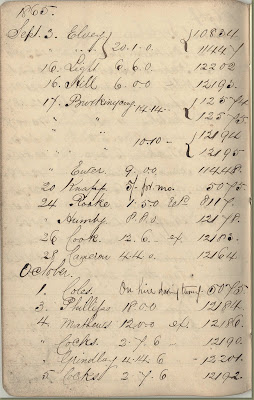 1865.
Sept. 3. Elvey 20.1.0. { 10834
" " { 11447
16. Light 6.6.0 12202
16. Hill 6.0.0 12193.
17. 14.14. { 12574
" { 12575
" 10.10 { 12194
" { 12195
" 9.00. 11448.
20 Knapp 5/- for mo. 5075.
24 Rooke 1.50 8117.
" Hornby P.P.O. 12178.
26 Cook. 12.6. ex. 12183.
28. Cameron 4.4.0. 12164
October.
1. Coles. On hire 5075
3. Phillips 18.00 12184
4. Mathews 12.00 ex. 12186.
" Cocks. 2.7.6 12190.
" Grindlay 4.14.6 12201.
5. Cocks 2.7.6 12192.